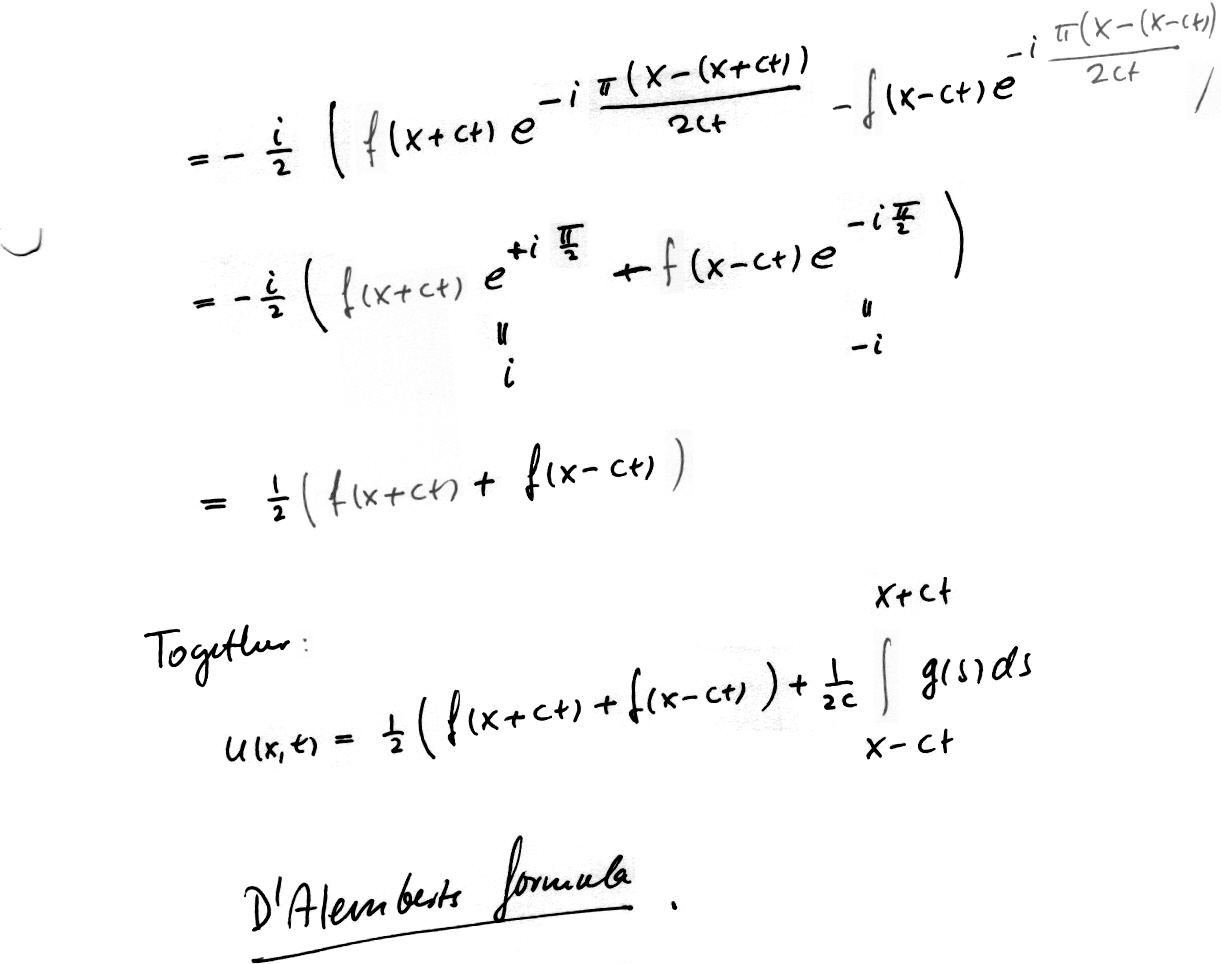 = - i/2 ( f(x+ct) e^{-i π(x-(x+ct))/2ct} - f(x-ct) e^{-i π(x-(x-ct))/2ct} )
= - i/2 ( f(x+ct) e^{+i π/2} + f(x-ct) e^{-i π/2} )
" "
i -i
= 1/2 ( f(x+ct) + f(x-ct) )
Together:
u(x,t) = 1/2 ( f(x+ct) + f(x-ct) ) + 1/2c ∫_{x-ct}^{x+ct} g(s) ds
D'Alemberts formula .